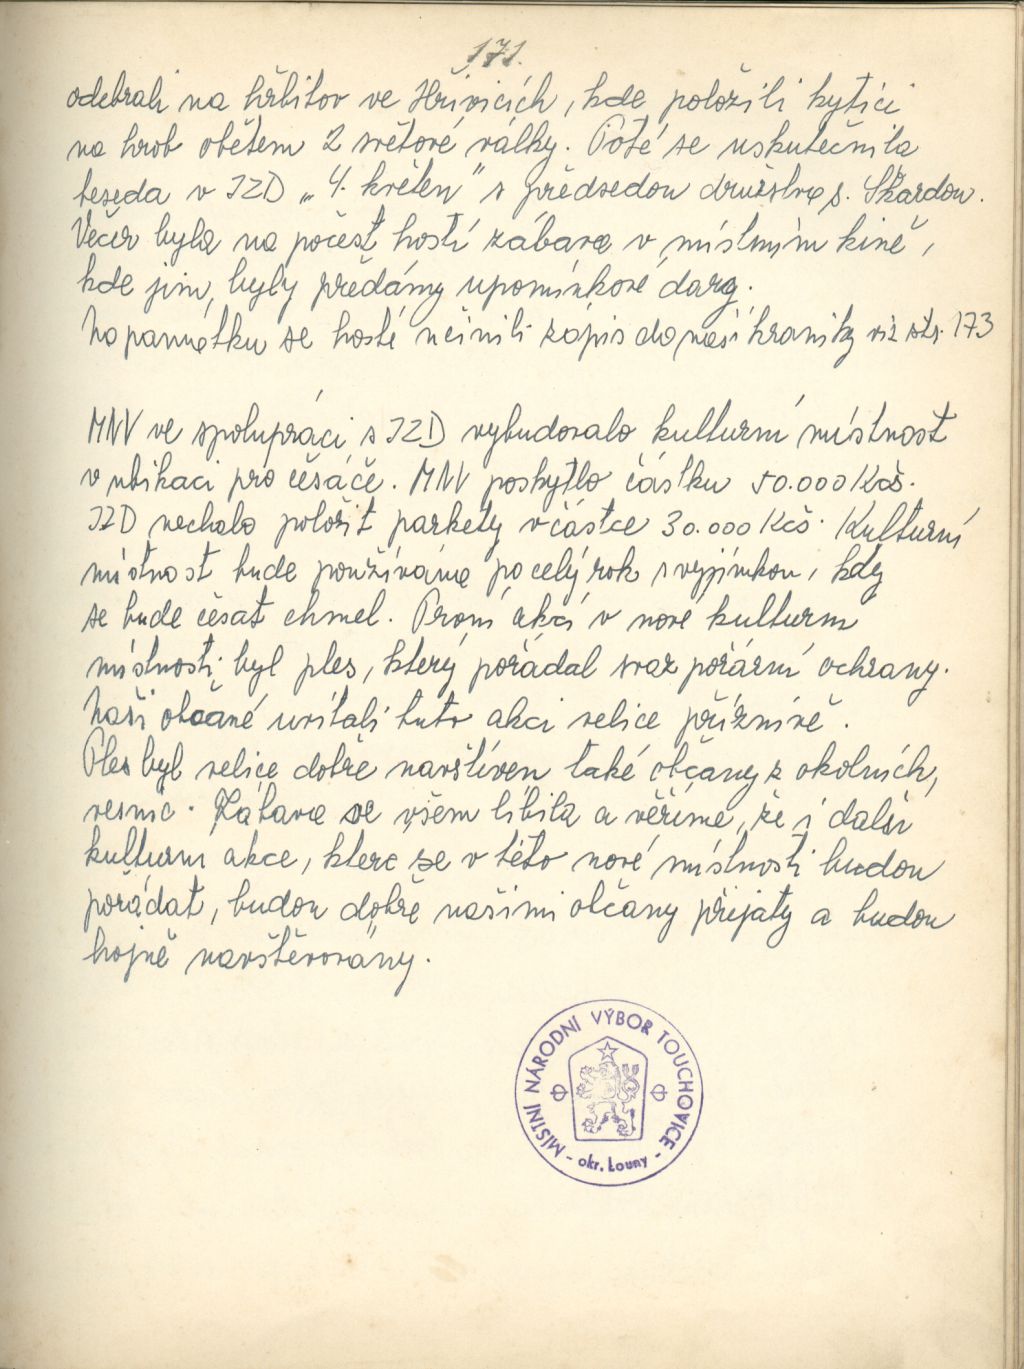 171.
odebrali na hřbitov ve Hřivicích, kde položili kytici
na hrob obětem 2 světové války. Poté se uskutečnila
beseda v JZD „4. květen" s předsedou družstva s. Škardou.
Večer byla na počest hostí zábava v místním kině,
kde jim byly předány upomínkové dary.
Na památku se hosté učinili zápis do naší kroniky viz str. 173
MNV ve spolupráci s JZD vybudovalo kulturní místnost
v ubikaci pro česáče. MNV poskytlo částku 50.000 Kčs.
JZD nechalo položit parkety v částce 30.000 Kčs. Kulturní
místnost bude používána po celý rok s vyjímkou, kdy
se bude česat chmel. První akcí v nové kulturní
místnosti byl ples, který pořádal svaz požární ochrany.
Naši občané uvítali tuto akci velice příznivě.
Ples byl velice dobře navštíven také občany z okolních
vesnic. Zábava se všem líbila a věříme, že i další
kulturní akce, které se v této nové místnosti budou
pořádat, budou dobře našimi občany přijaty a budou
hojně navštěvovány.
MÍSTNÍ NÁRODNÍ VÝBOR TOUCHOVICE
- okr. Louny -